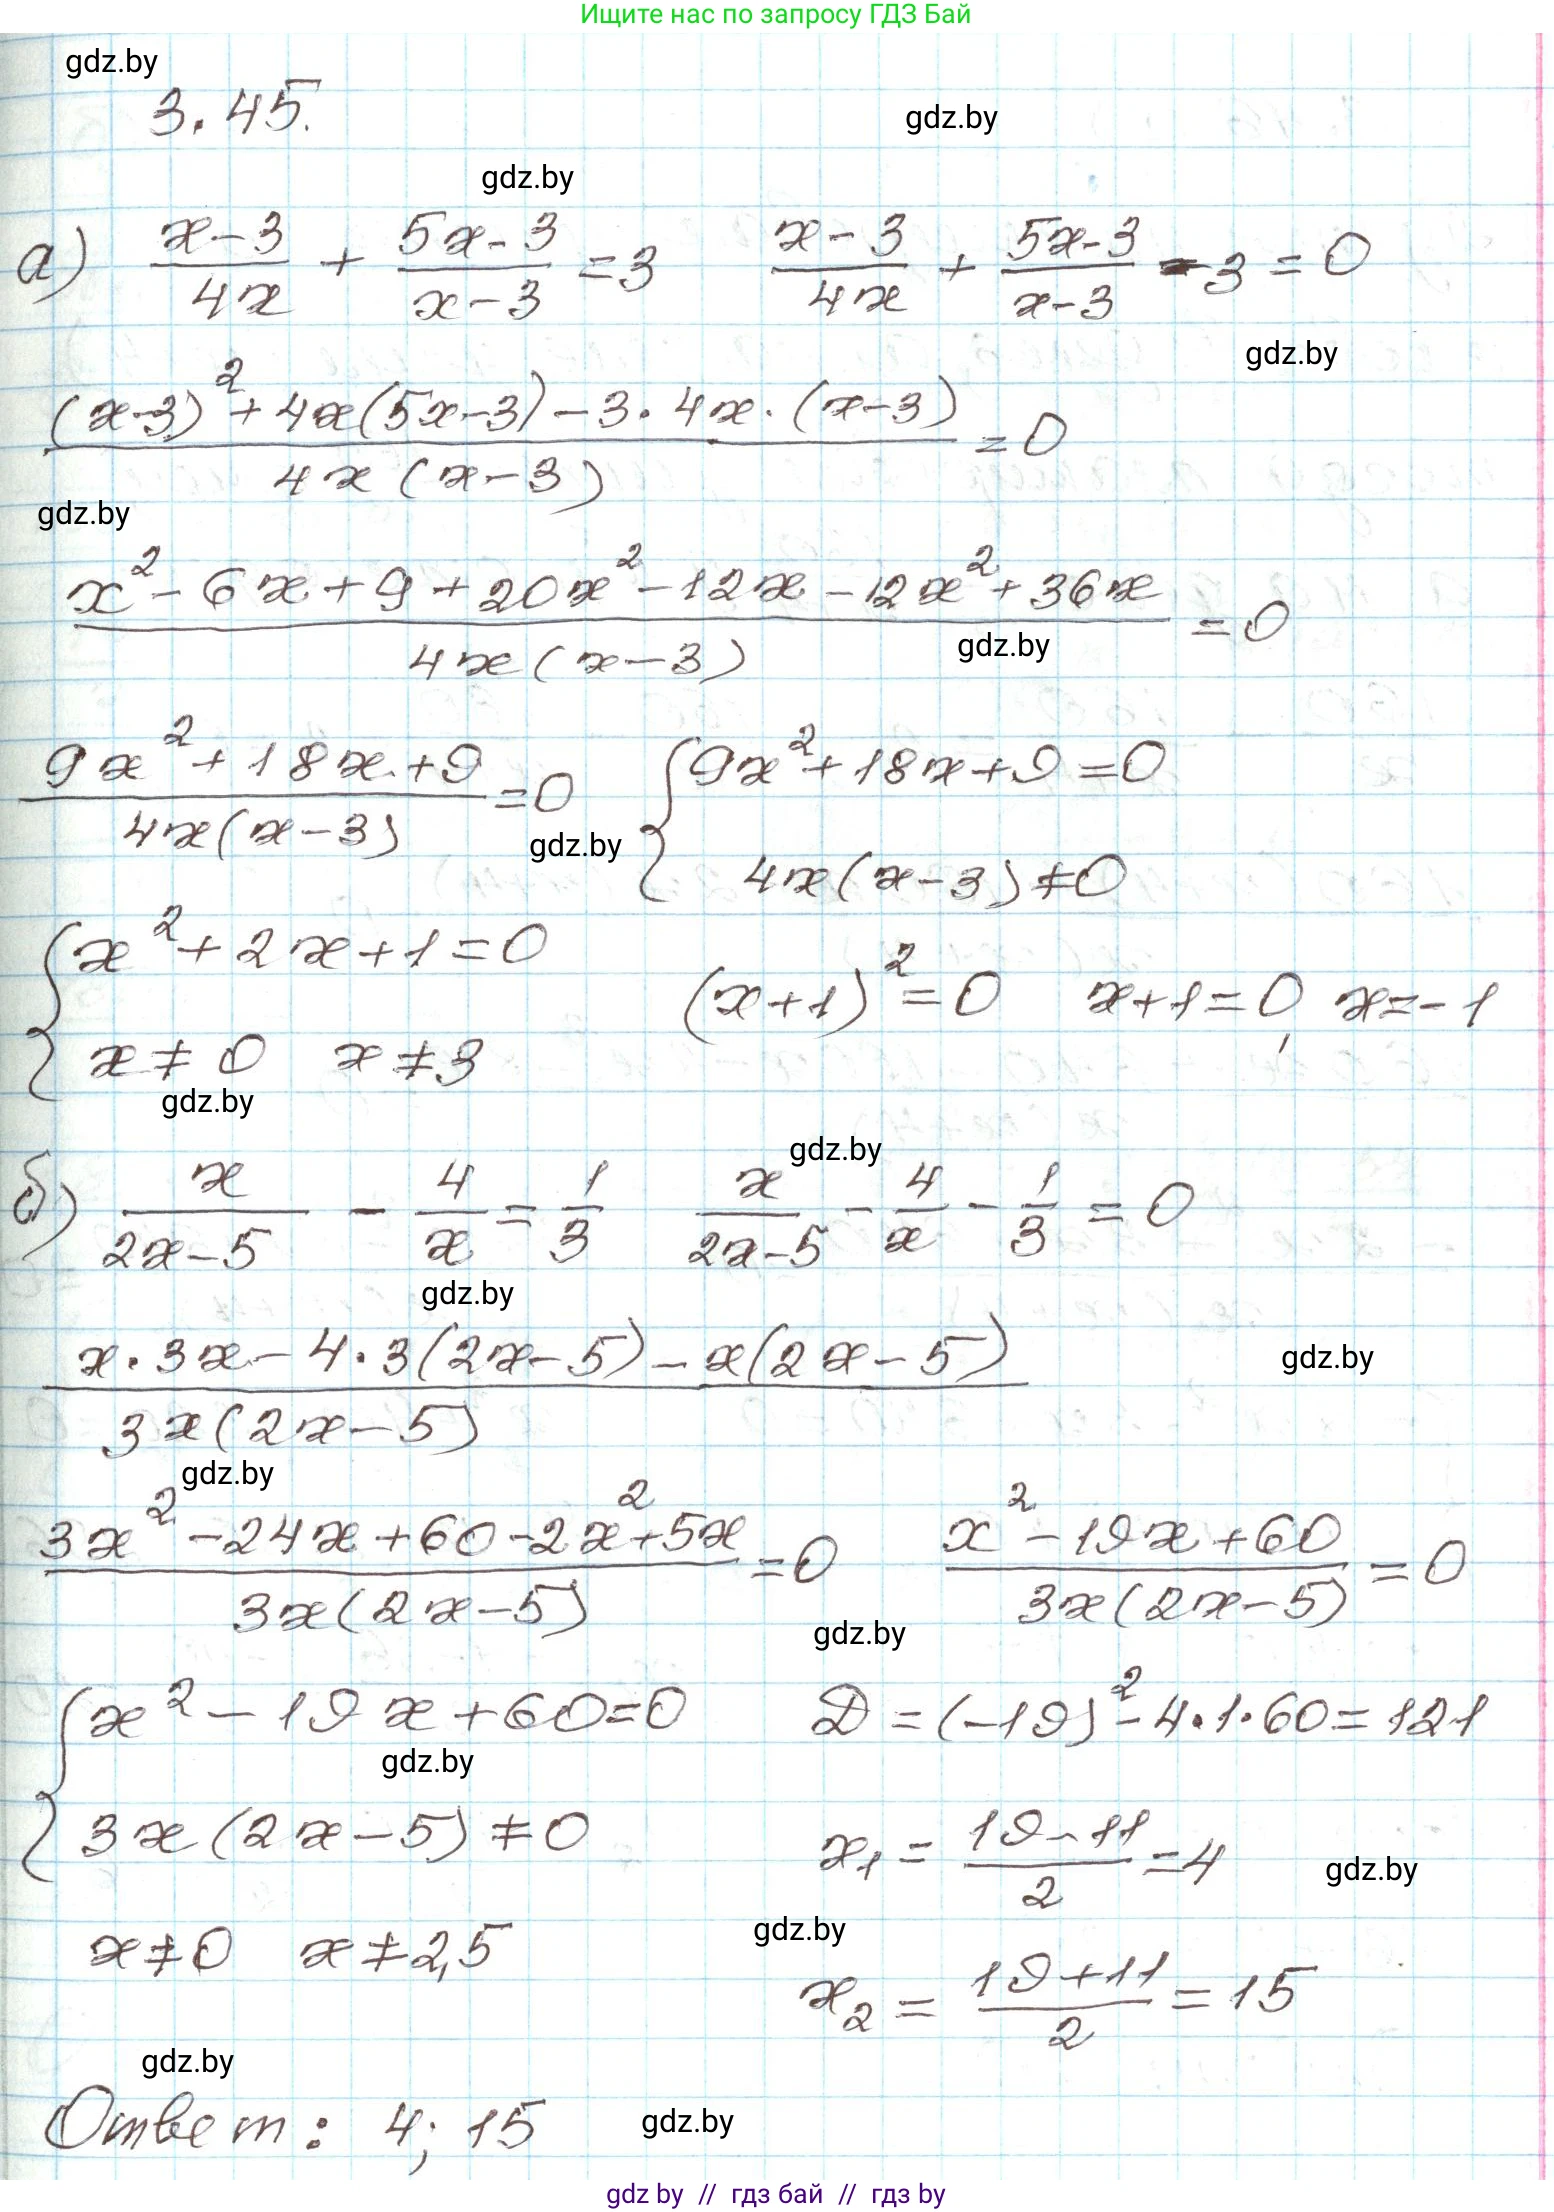 Ищите нас по запросу ГДЗ Бай
gdz.by
3.45.
gdz.by
gdz.by
а) (x-3)/(4x) + (5x-3)/(x-3) = 3   (x-3)/(4x) + (5x-3)/(x-3) - 3 = 0
gdz.by
((x-3)² + 4x(5x-3) - 3·4x·(x-3))/(4x(x-3)) = 0
gdz.by
(x² - 6x + 9 + 20x² - 12x - 12x² + 36x)/(4x(x-3)) = 0
gdz.by
(9x² + 18x + 9)/(4x(x-3)) = 0   { 9x² + 18x + 9 = 0
gdz.by   4x(x-3) ≠ 0
{ x² + 2x + 1 = 0   (x+1)² = 0   x+1 = 0, x = -1
x ≠ 0   x ≠ 3
gdz.by
gdz.by
б) x/(2x-5) - 4/x = 1/3   x/(2x-5) - 4/x - 1/3 = 0
gdz.by
(x·3x - 4·3(2x-5) - x(2x-5))/(3x(2x-5))
gdz.by
gdz.by
(3x² - 24x + 60 - 2x² + 5x)/(3x(2x-5)) = 0   (x² - 19x + 60)/(3x(2x-5)) = 0
gdz.by
{ x² - 19x + 60 = 0   D = (-19)² - 4·1·60 = 121
gdz.by
3x(2x-5) ≠ 0   x₁ = (19-11)/2 = 4
gdz.by
gdz.by
x ≠ 0   x ≠ 2,5   x₂ = (19+11)/2 = 15
gdz.by
Ответ: 4; 15
gdz.by
gdz by // гдз бай // гдз by